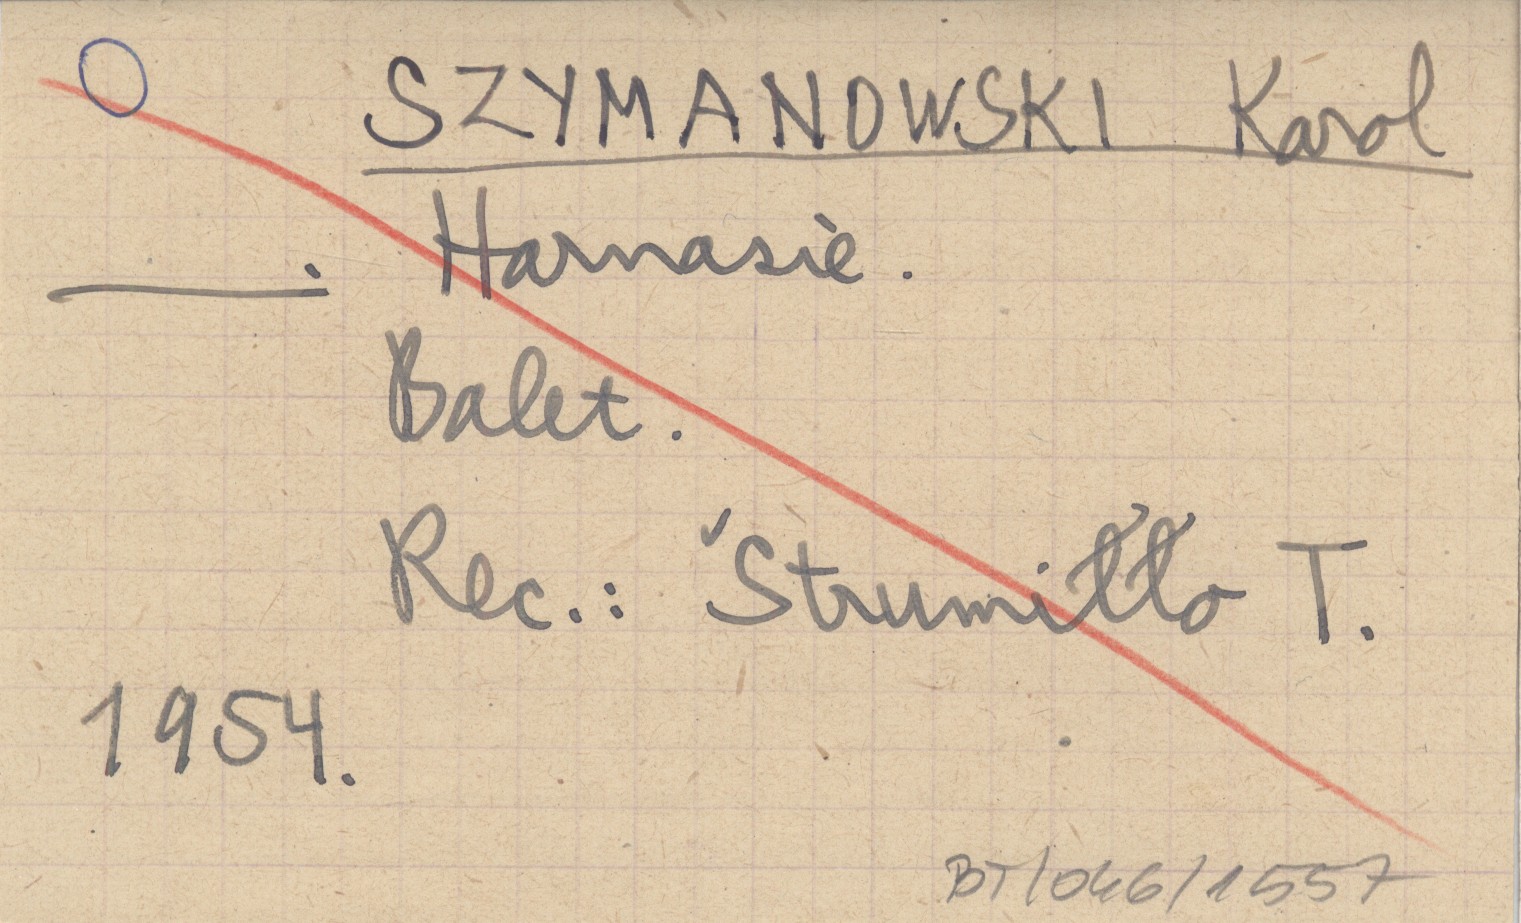 SZYMANOWSKI Karol
Harnasie.
Balet.
Rec.: Strumiłło T.
1954.
BT/046/1557